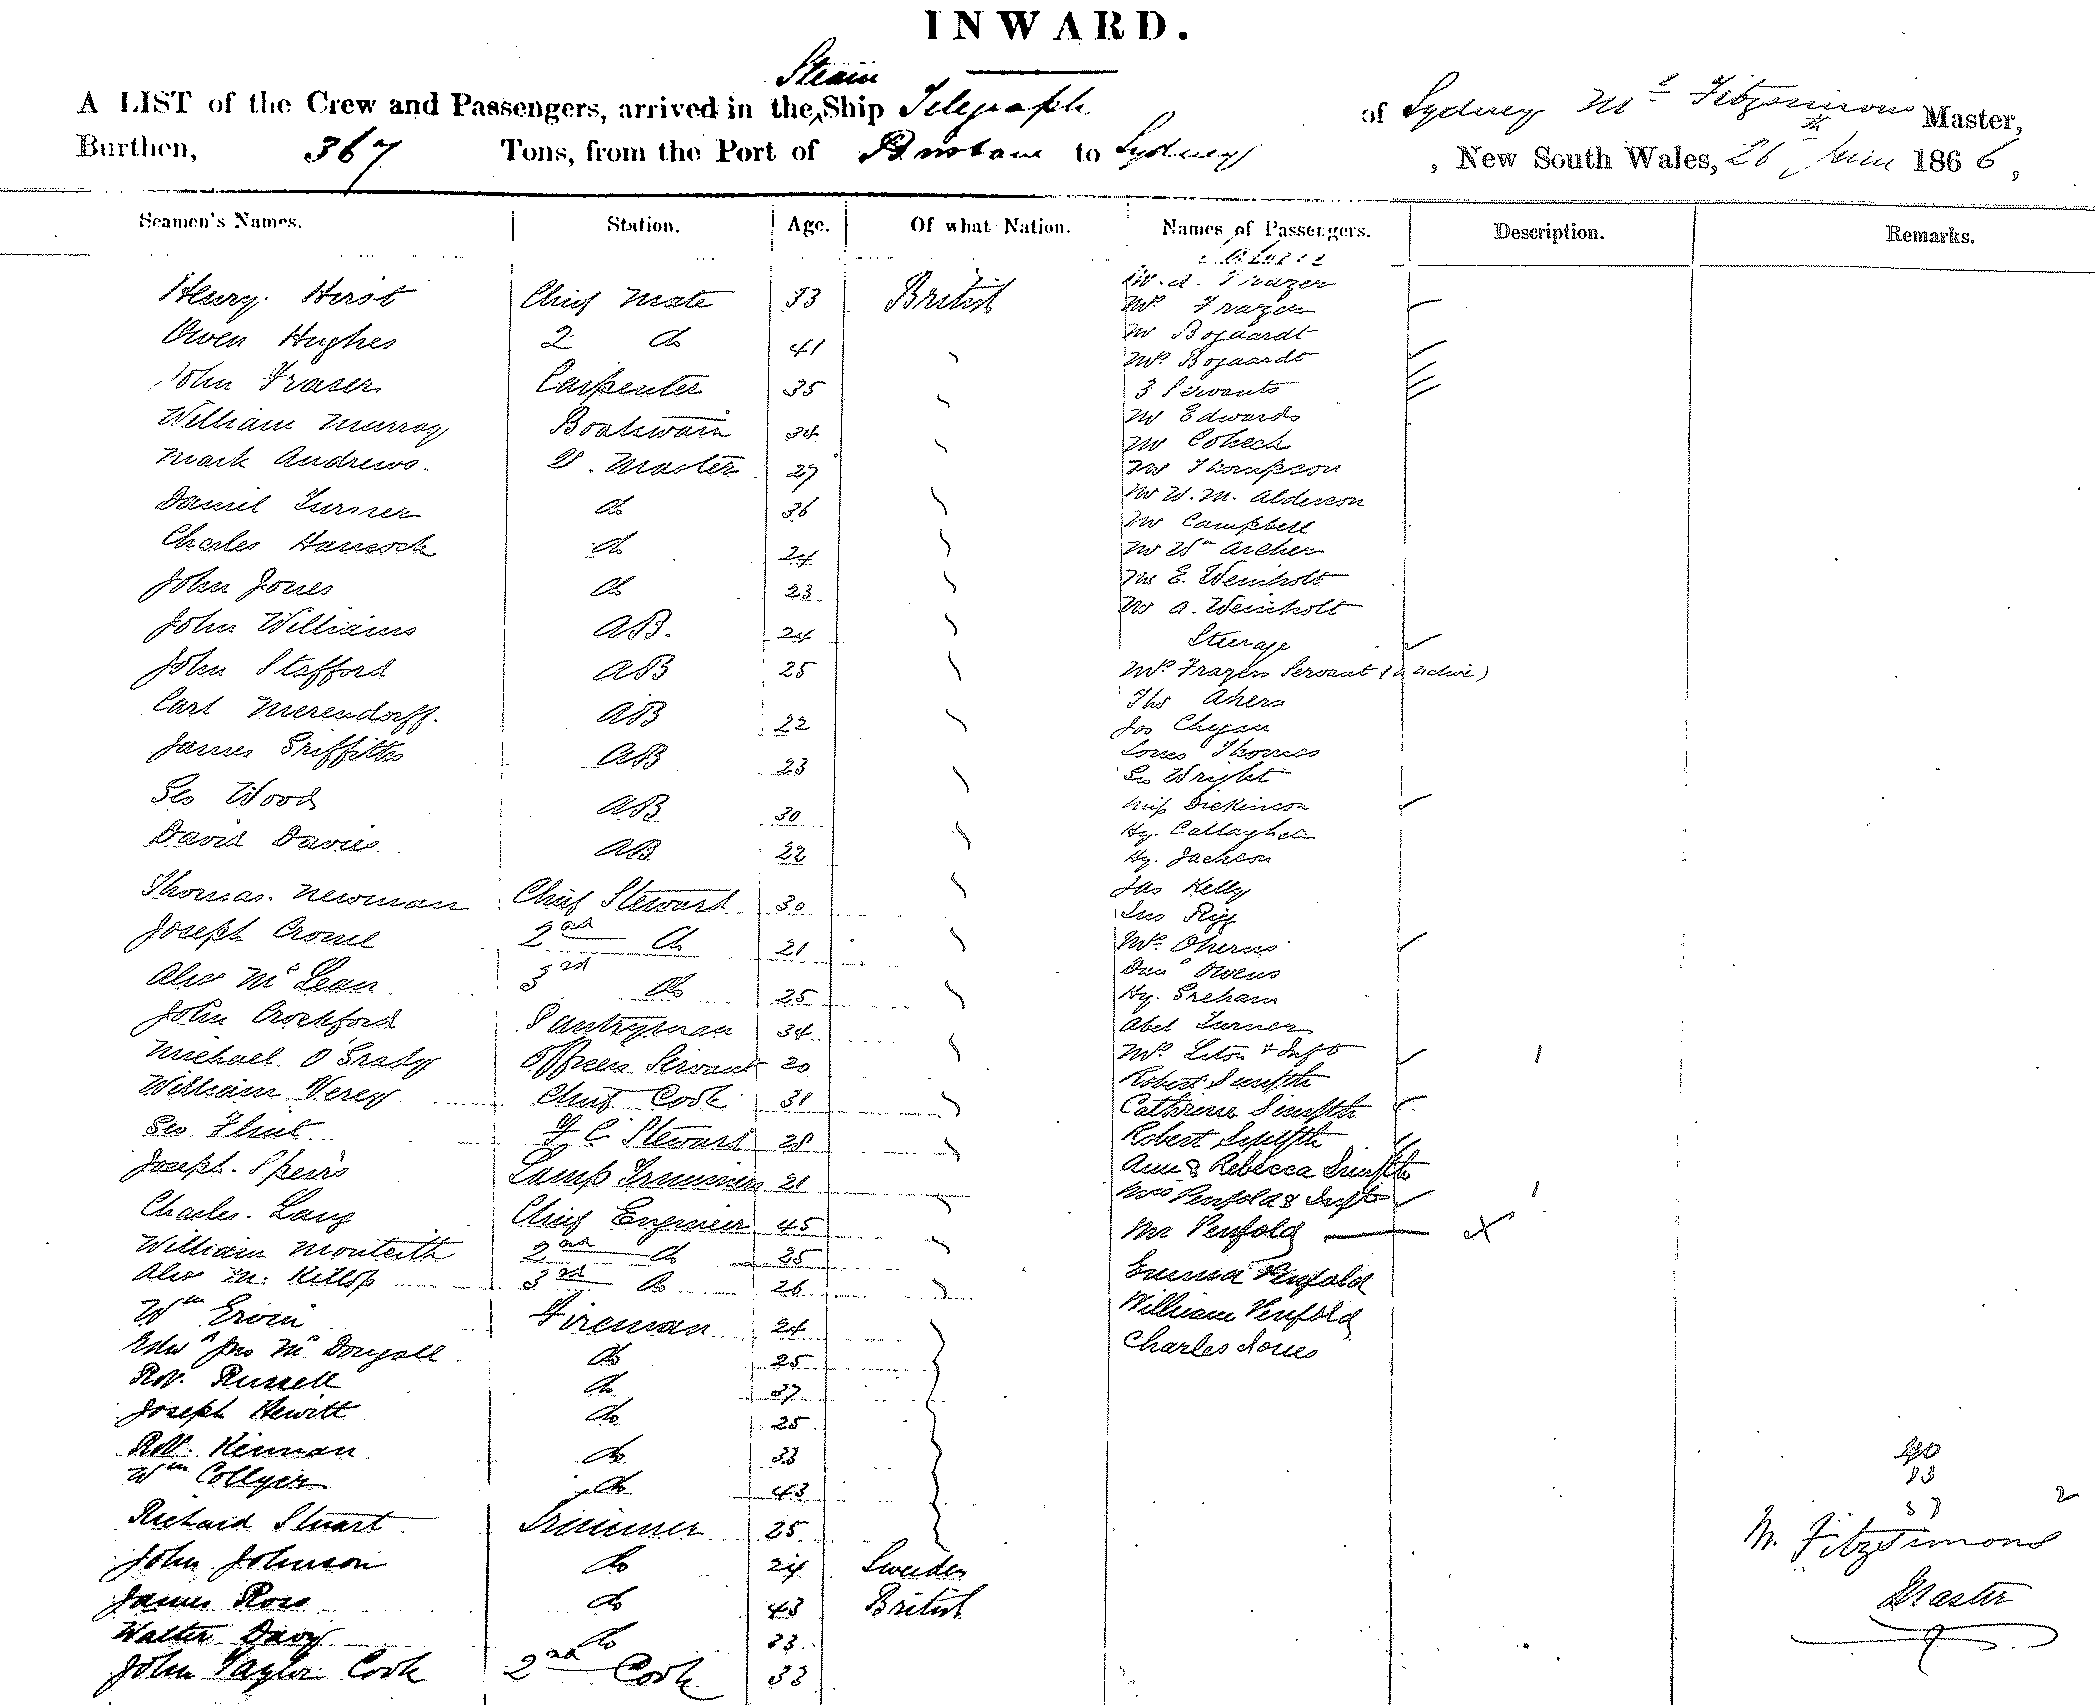 INWARD.
Steam
A LIST of the Crew and Passengers, arrived in the Ship Telegraph of Sydney Fitzsimons Master,
Burthen, 367 Tons, from the Port of Brisbane to Sydney, New South Wales, 26th June 1866,
Seamen's Names. Station. Age. Of what Nation. Names of Passengers. Description. Remarks.
Henry Hirst Chief Mate 33 British
Owen Hughes 2 do 41
John Fraser Carpenter 35
William Murray Boatswain 34
Mark Andrews. Q. Master 27
Daniel Turner do 36
Charles Hancock do 24
John Jones do 23
John Williams AB. 24
John Stafford AB 25
Carl Merendorff. AB 22
James Griffiths AB 23
Geo Wood AB 30
David Davies AB 22
Thomas. Newman Chief Stewart 30
Joseph Crowe 2nd do 21
Alex McLean 3rd do 25
John Crockford Pantryman 34
Michael O'Grady Officers Servant 20
William Verey Chief Cook 31
Geo Flint F C Stewart 28
Joseph. Speirs Lamp Trimmer 21
Charles. Lang Chief Engineer 45
William Monteith 2nd do 25
Alex M. Killop 3rd do 26
Wm Ervin Fireman 24
Jno Mc Dougall do 25
Robt. Russell do 37
Joseph Hewitt do 25
Robt. Kinnan do 33
Wm Collyer do 43
Richard Stuart Trimmer 25
John Johnson do 24 Sweden
James Ross do 43 British
Walter Davy do 23
John Taylor Cook 2nd Cook 33
W. A. Frazer
Mrs Frazer
Mr Bogaardt
Mrs Bogaardt
3 Servants
Mr Edwards
Mr Cobeck
Mr Thompson
Mr W. M. Alderson
Mr Campbell
Mr Wm Archer
Mr E. Weinholt
Mr A. Weinholt
Steerage
Mrs Frazers Servant (native)
Ths Ahern
Jos
Louis Thomas
Geo Wright
Miss Dickinson
Hy. Callaghan
Hy. Jackson
Jas Kelly
Jno Rigg
Mrs Oherns
Danl Owens
Hy. Greham
Abel Turner
Mrs & Inft 1
Robert
Catherine
Robert
Ann & Rebecca
Mrs Penfold & Inft 1
Mr Penfold — X
Emma Penfold
William Penfold
Charles Jones
40
M. Fitzsimons
Master